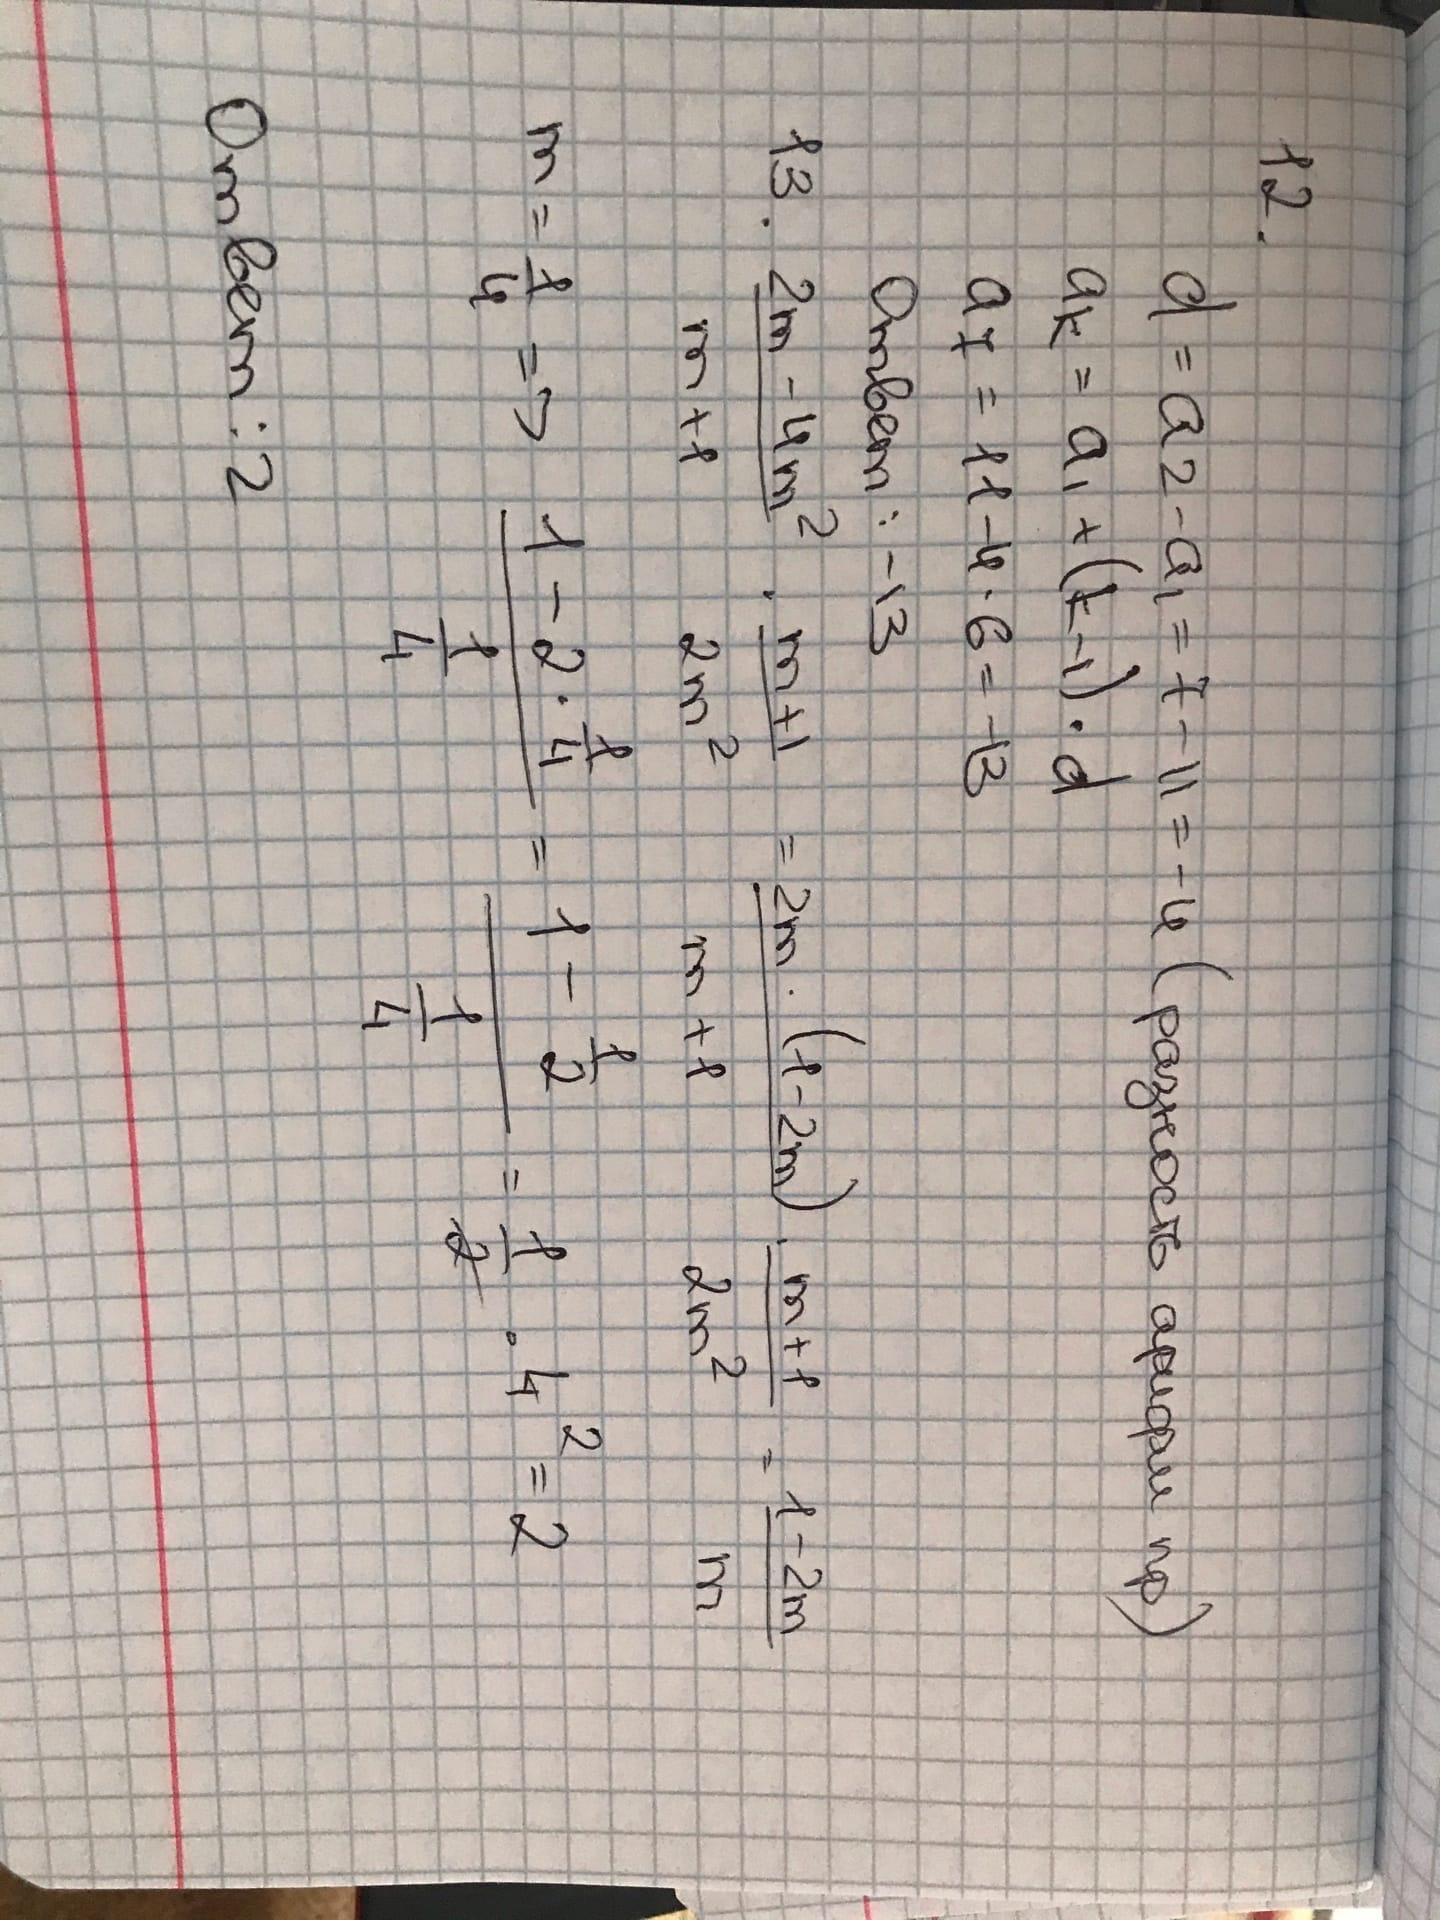 12.
d = a2 - a1 = 7 - 11 = -4 (разность арифм пр)
ak = a1 + (k-1) · d
a7 = 11 - 4 · 6 = -13
Ответ: -13
13. (2m - 4m²)/(m+1) · (m+1)/(2m²) = (2m · (1-2m))/(m+1) · (m+1)/(2m²) = (1-2m)/m
m = 1/4 => (1 - 2 · 1/4)/(1/4) = (1 - 1/2)/(1/4) = 1/2 · 4² = 2
Ответ: 2